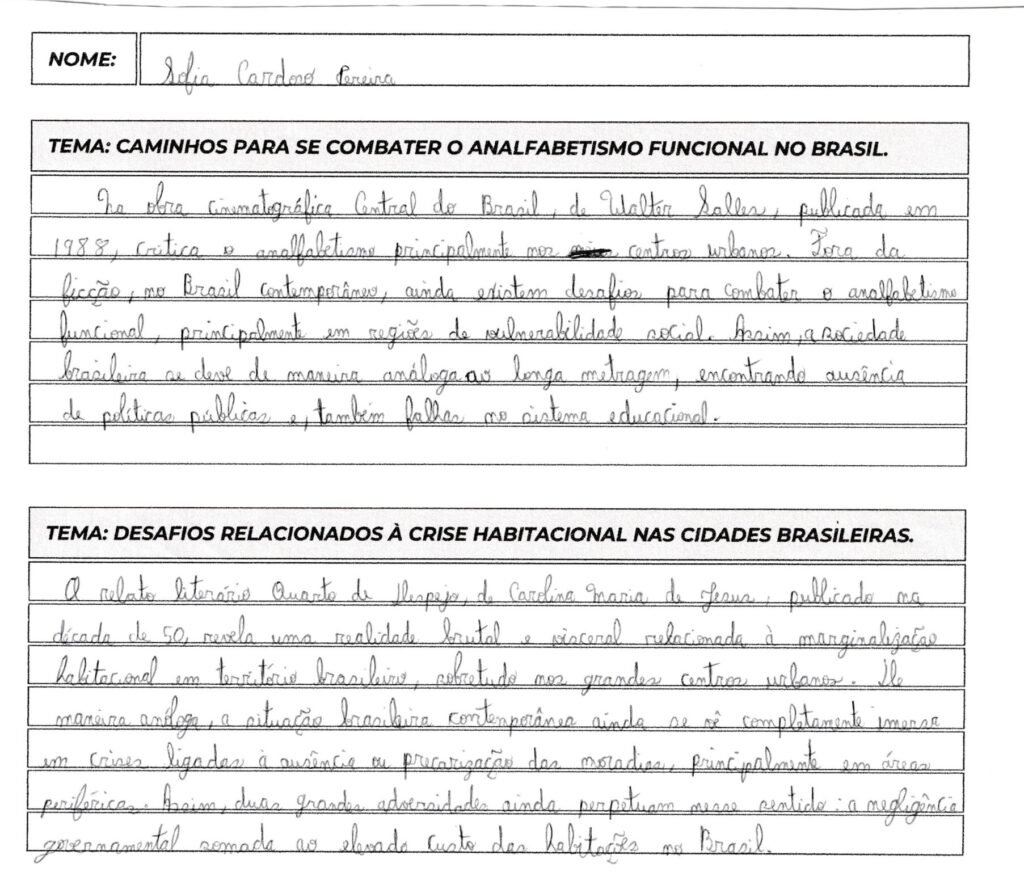 NOME: Sofia Cardoso Pereira
TEMA: CAMINHOS PARA SE COMBATER O ANALFABETISMO FUNCIONAL NO BRASIL.
Na obra cinematográfica Central do Brasil, de Walter Salles, publicada em
1988, critica o analfabetismo principalmente nos centros urbanos. Fora da
ficção, no Brasil contemporâneo, ainda existem desafios para combater o analfabetismo
funcional, principalmente em regiões de vulnerabilidade social. Assim, a sociedade
brasileira se deve de maneira análoga ao longa metragem, encontrando ausência
de políticas públicas e, também falhas no sistema educacional.
TEMA: DESAFIOS RELACIONADOS À CRISE HABITACIONAL NAS CIDADES BRASILEIRAS.
O relato literário Quarto de Despejo, de Carolina Maria de Jesus, publicado na
década de 50, revela uma realidade brutal e visceral relacionada à marginalização
habitacional em território brasileiro, sobretudo nos grandes centros urbanos. De
maneira anóloga, a situação brasileira contemporânea ainda se vê completamente imersa
em crises ligadas à ausência ou precarização das moradias, principalmente em áreas
periféricas. Assim, duas grandes adversidades ainda perpetuam nesse sentido: a negligência
governamental somada ao elevado custo das habitações no Brasil.